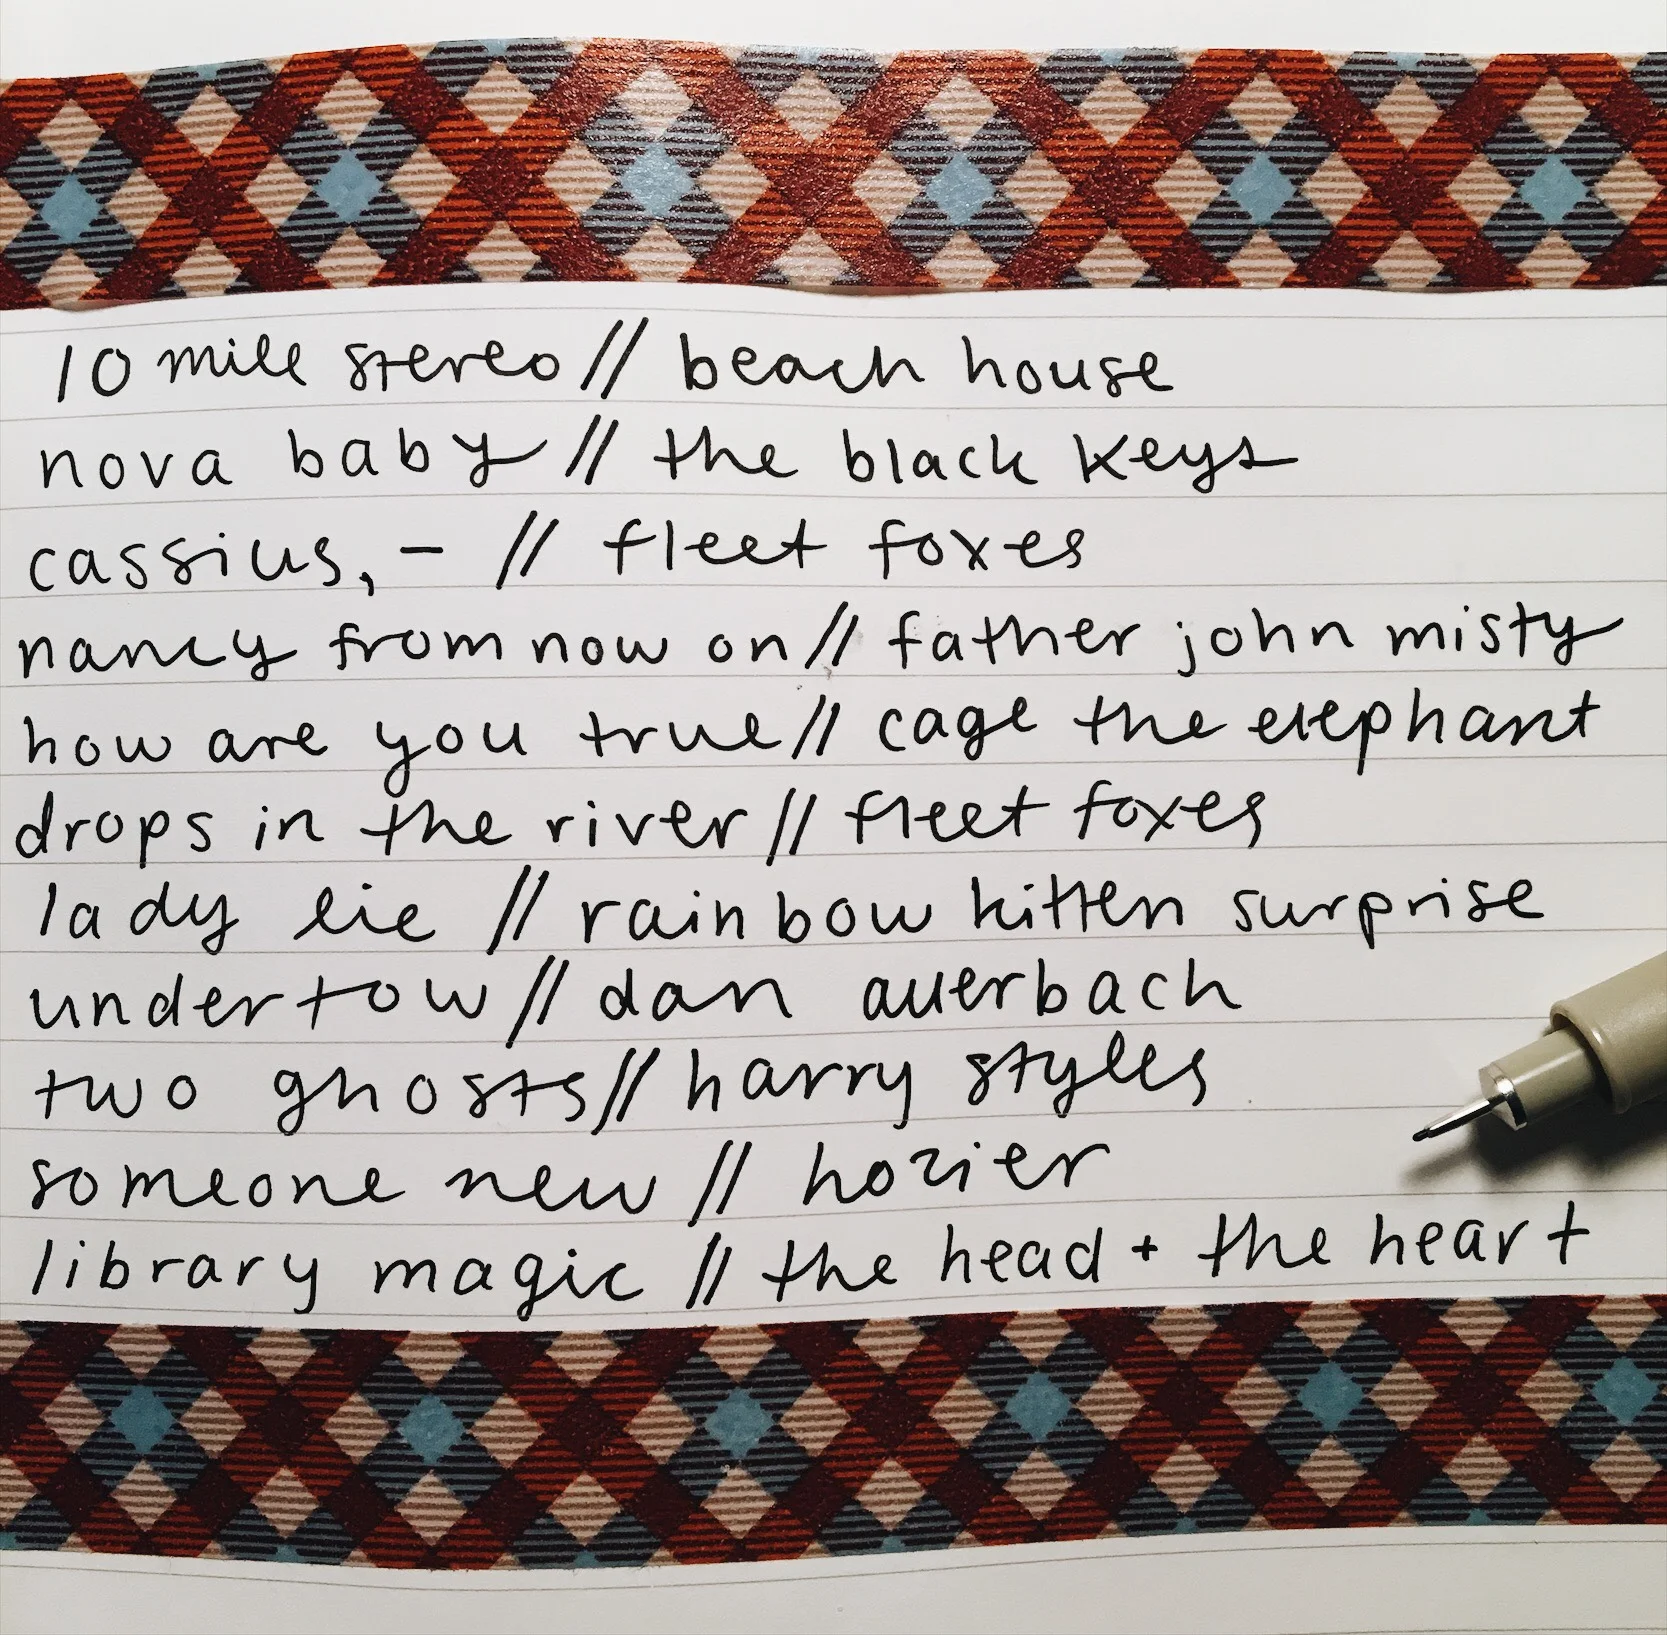 10 mile stereo // beach house
nova baby // the black keys
cassius, – // fleet foxes
nancy from now on // father john misty
how are you true // cage the elephant
drops in the river // fleet foxes
lady lie // rainbow kitten surprise
undertow // dan auerbach
two ghosts // harry styles
someone new // hozier
library magic // the head + the heart